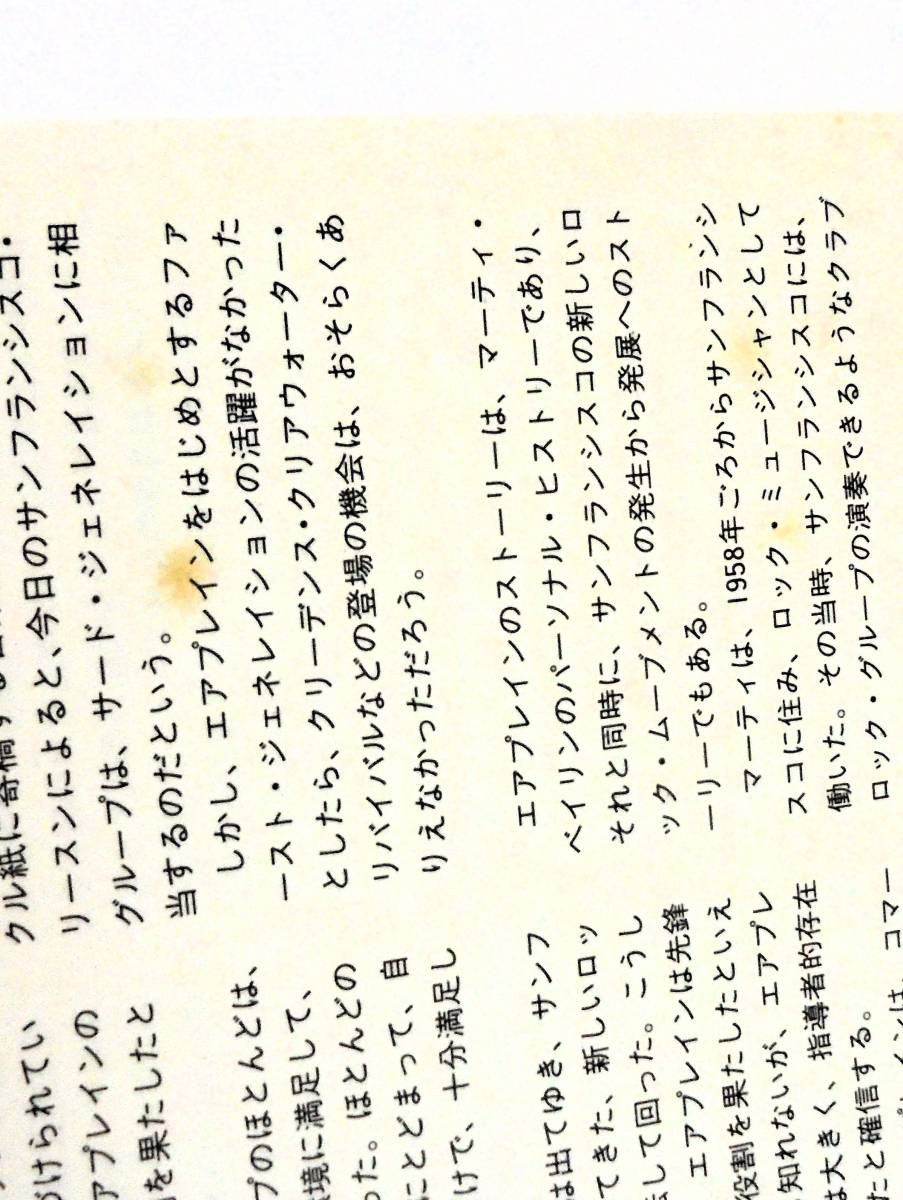 づけられてい
アプレインの
を果たしたと
プのほとんどは、
境に満足して、
った。ほとんどの
にとどまって、自
けで、十分満足し
は出てゆき、サンフ
てきた、新しいロッ
して回った。こうし
エアプレインは先鋒
役割を果たしたといえ
知れないが、エアプレ
は大きく、指導者的存在
たと確信する。
インは、コマー
クル紙に寄稿する
リースンによると、今日のサンフランシスコ・
グループは、サード・ジェネレイションに相
当するのだという。
しかし、エアプレインをはじめとするファ
ースト・ジェネレイションの活躍がなかった
としたら、クリーデンス・クリアウォーター・
リバイバルなどの登場の機会は、おそらくあ
りえなかっただろう。
エアプレインのストーリーは、マーティ・
ベイリンのパーソナル・ヒストリーであり、
それと同時に、サンフランシスコの新しいロ
ック・ムーブメントの発生から発展へのスト
ーリーでもある。
マーティは、1958年ごろからサンフランシ
スコに住み、ロック・ミュージシャンとして
働いた。その当時、サンフランシスコには、
ロック・グループの演奏できるようなクラブ